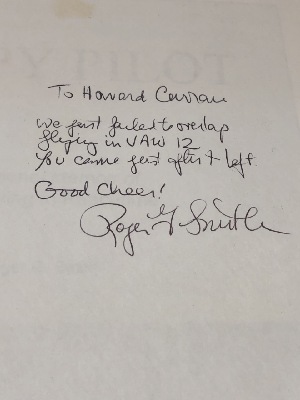 To Howard Curran
We just failed to overlap
flying in VAW 12
You came just after I left.
Good Cheer!
Roger Smith